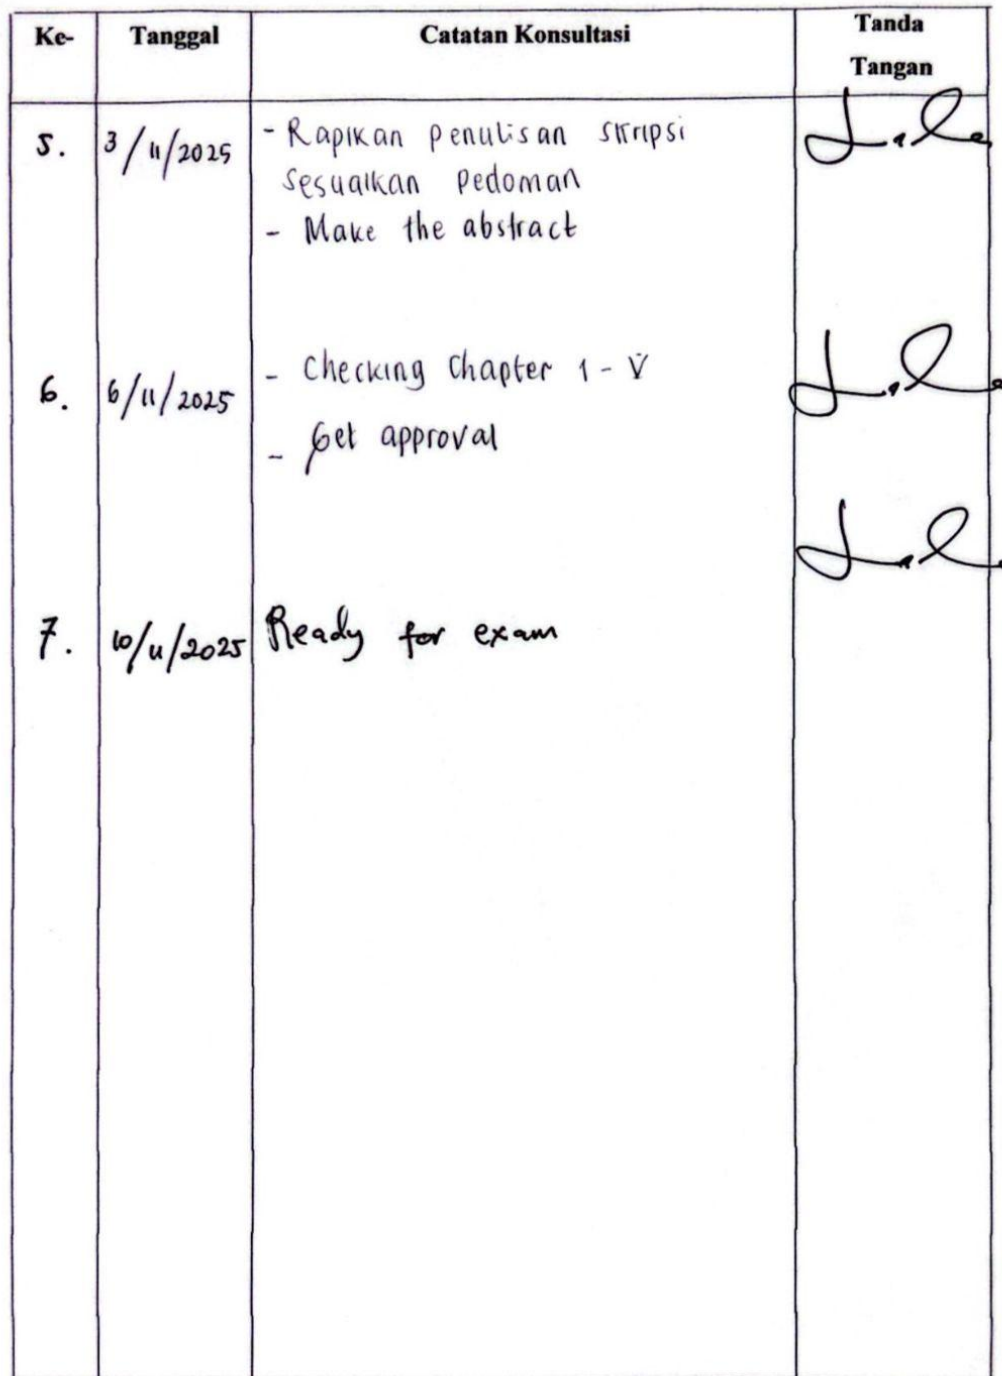 Ke- Tanggal Catatan Konsultasi Tanda
Tangan
5. 3/11/2025 - Rapikan penulisan skripsi
sesuaikan pedoman
- Make the abstract
6. 6/11/2025 - Checking Chapter 1 - V
- Get approval
7. 10/11/2025 Ready for exam